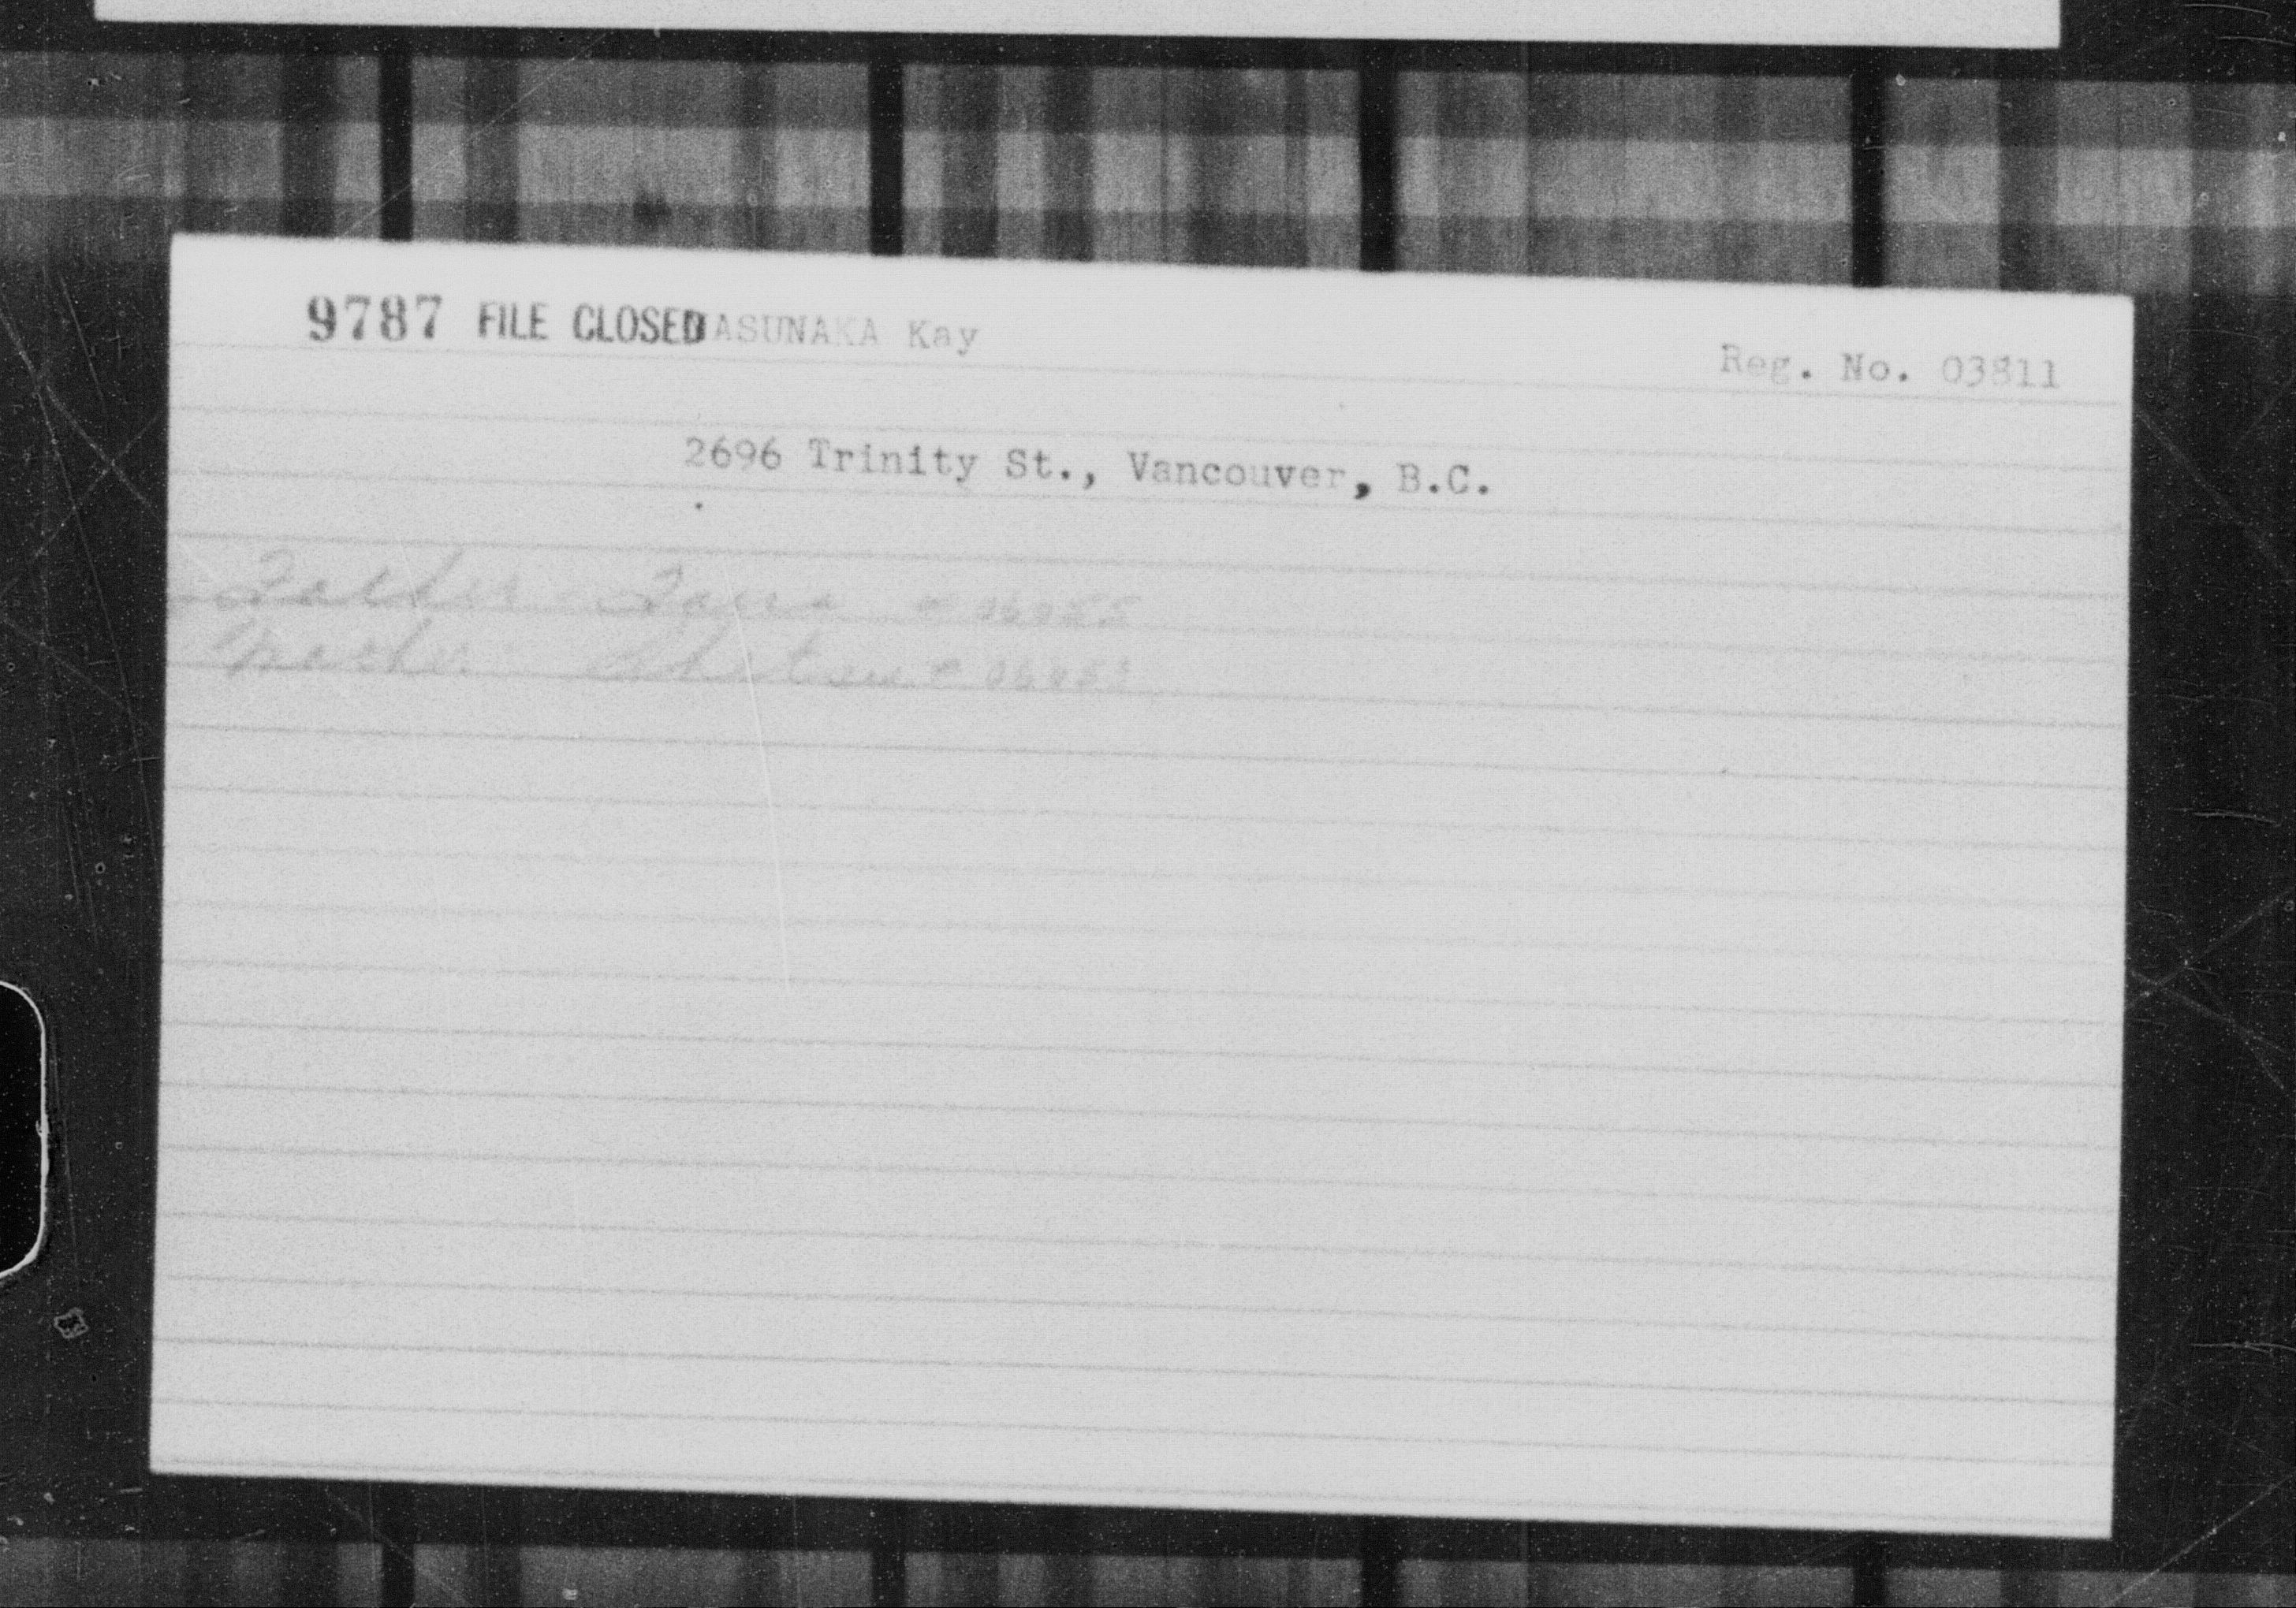 9787 FILE CLOSED ASUNAKA Kay
Reg. No. 03811
2696 Trinity St., Vancouver, B.C.
Father
Mother